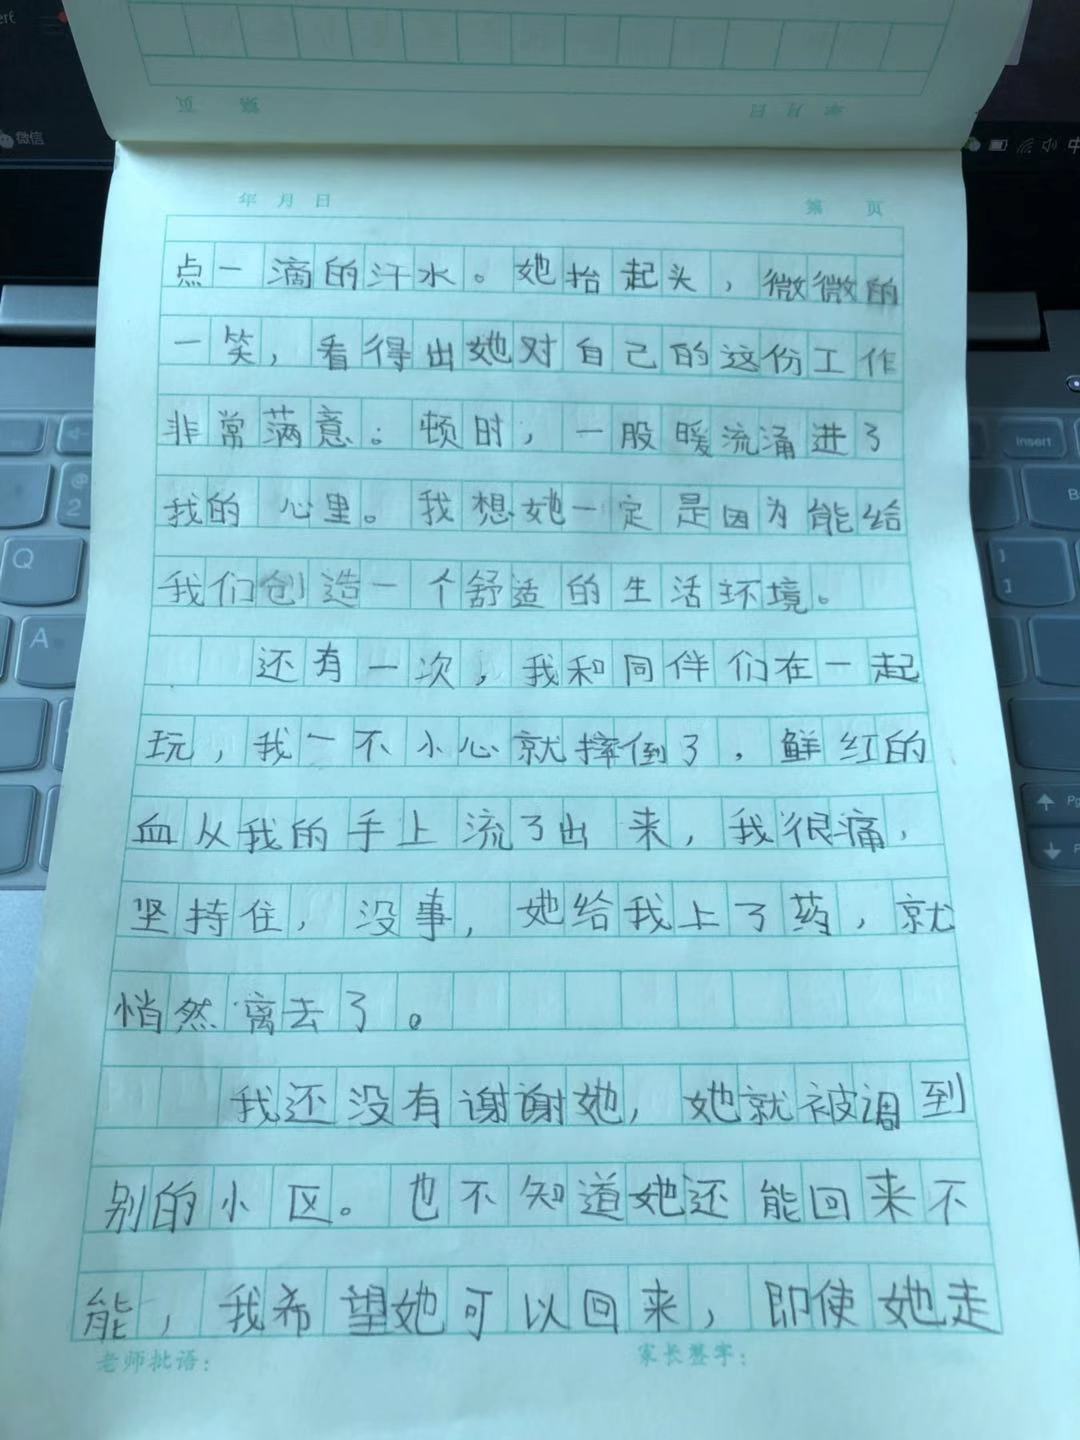 微信
中
insert
@
2
Q
A
年 月 日 第 页
点一滴的汗水。她抬起头，微微的
一笑，看得出她对自己的这份工作
非常满意。顿时，一股暖流涌进了
我的心里。我想她一定是因为能给
我们创造一个舒适的生活环境。
还有一次，我和同伴们在一起
玩，我一不小心就摔倒了，鲜红的
血从我的手上流了出来，我很痛，
坚持住，没事，她给我上了药，就
悄然离去了。
我还没有谢谢她，她就被调到
别的小区。也不知道她还能回来不
能，我希望她可以回来，即使她走
老师批语： 家长签字：